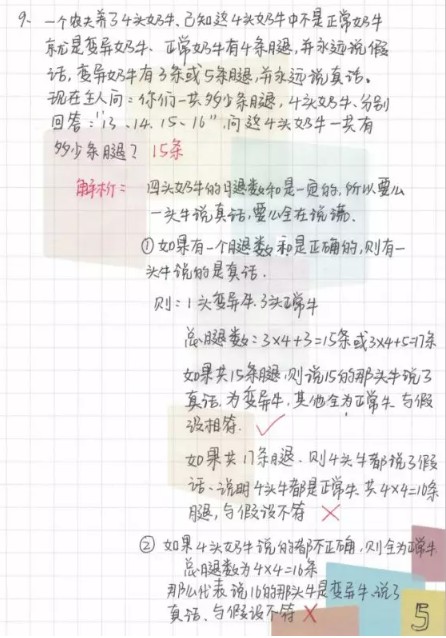 9、一个农夫养了4头奶牛、已知这4头奶牛中不是正常奶牛
就是变异奶牛、正常奶牛有4条腿，并永远说假
话，变异奶牛有3条或5条腿，并永远说真话。
现在主人问：你们一共多少条腿，4头奶牛、分别
回答："13、14、15、16"，问这4头奶牛一共有
多少条腿？ 15条
解析： 四头奶牛的腿数和是一定的，所以要么
一头牛说真话，要么全在说谎、
① 如果有一个腿数和是正确的，则有一
头牛说的是真话．
则：1头变异牛、3头正常牛
总腿数：3×4+3=15条或3×4+5=17条
如果共15条腿，则说15的那头牛说了
真话、为变异牛，其他全为正常牛、与假
设相符． ✓
如果共17条腿、则4头牛都说了假
话、说明4头牛都是正常牛、共4×4=16条
腿，与假设不符 ×
② 如果4头奶牛说的都不正确，则全为正常牛
总腿数为4×4=16条
那么代表说16的那头牛是变异牛、说了
真话、与假设不符 ×
5